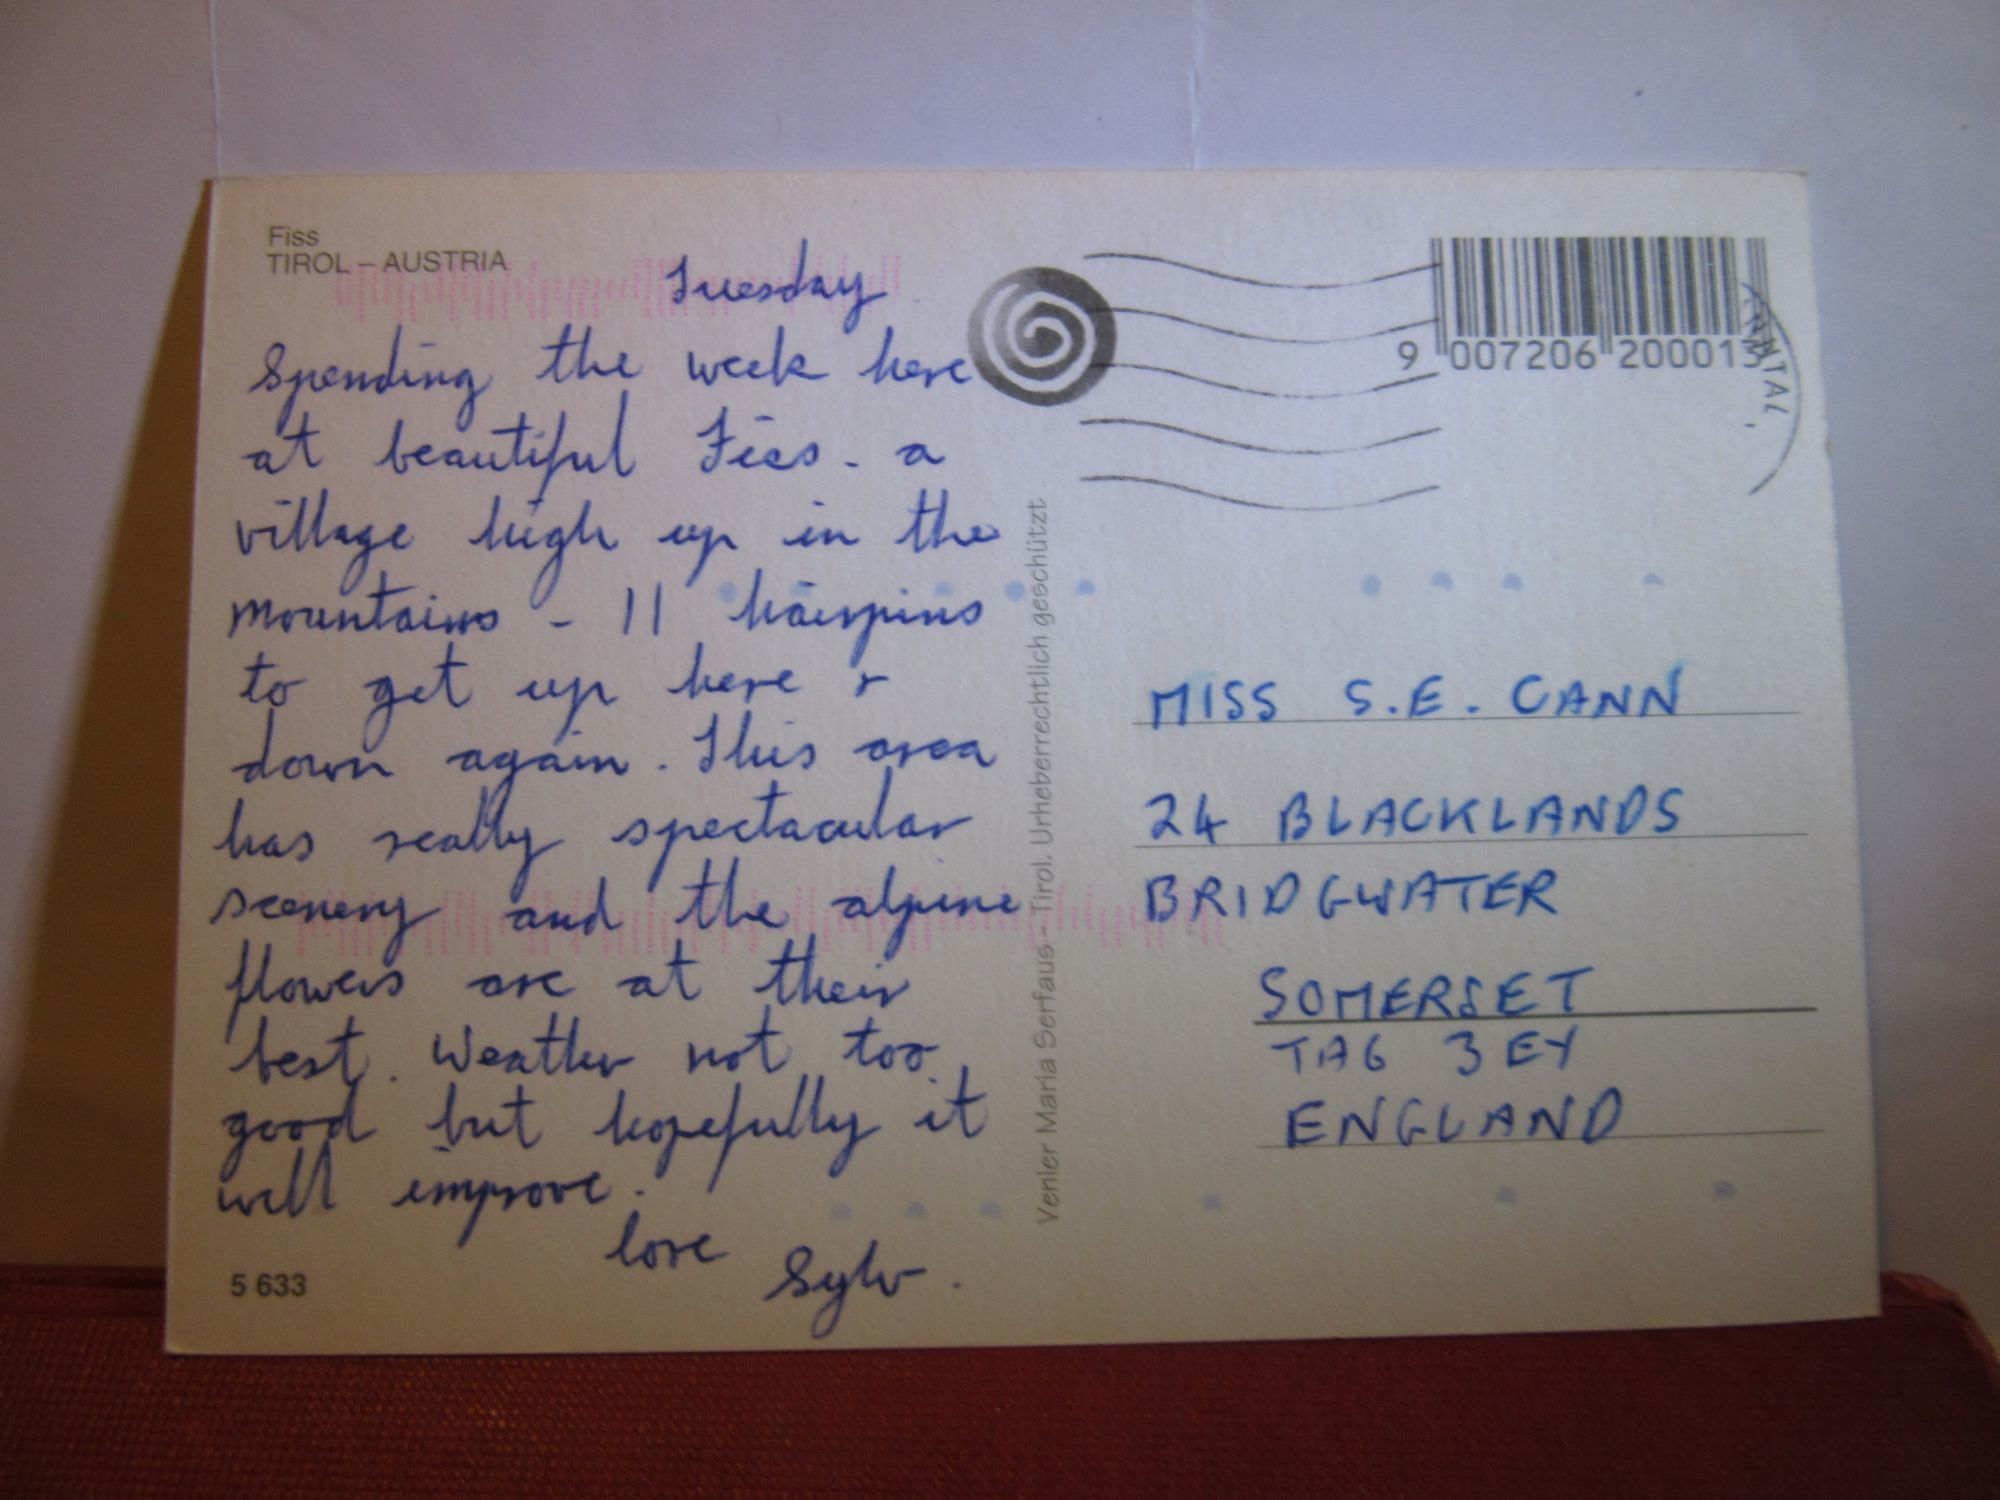 Fiss
TIROL – AUSTRIA
Tuesday
Spending the week here
at beautiful Fiss - a
village high up in the
mountains - 11 hairpins
to get up here &
down again. This area
has really spectacular
scenery and the alpine
flowers are at their
best. Weather not too
good but hopefully it
will improve.
love
Sylv.
5 633
Venier Maria Serfaus - Tirol. Urheberrechtlich geschützt
9 007206 200013
MISS S.E. CANN
24 BLACKLANDS
BRIDGWATER
SOMERSET
TA6 3EY
ENGLAND